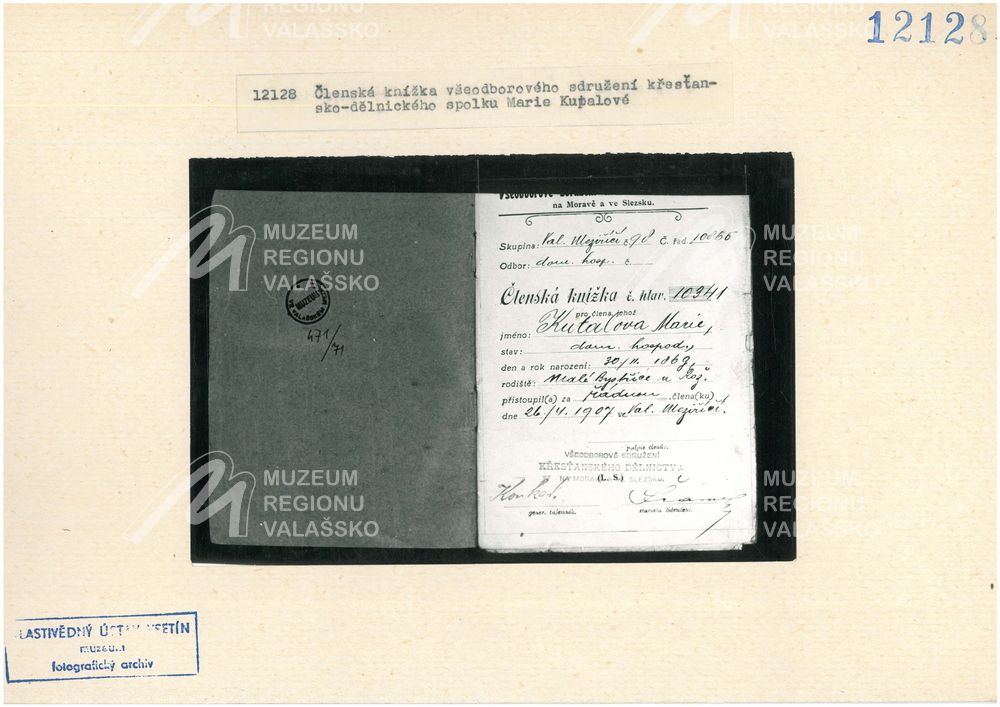 12128
12128 Členská knížka všeodborového sdružení křesťan-
sko-dělnického spolku Marie Kupalové
Všeodborové Sdružení
na Moravě a ve Slezsku.
Skupina: Val. Meziříčí č 98 Č. řad. 10866
Odbor: dom. hosp. č.
Členská knížka č. hlav. 10341
pro člena, jehož
jméno: Kutalova Marie,
stav: dom. hospod.,
den a rok narození: 30/11. 1869,
rodiště: Malé Bystřice u Rož.
přistoupil(a) za řádnou člena(ku)
dne 26/4. 1907 ve Val. Meziříčí.
podpis člena.
VŠEODBOROVÉ SDRUŽENÍ
KŘESŤANSKÉHO DĚLNICTVA
NA MORAVĚ A SLEZSKU
(L. S.)
gener. tajemník.
starosta Sdružení.
MUZEUM
VE VALAŠSKÉM
471/71
VLASTIVĚDNÝ ÚSTAV VSETÍN
muzeum
fotografický archiv
MUZEUM
REGIONU
VALAŠSKO
MUZEUM
REGIONU
VALAŠSKO
MUZEUM
REGIONU
VALAŠSKO
MUZEUM
REGIONU
VALAŠSKO
REGIONU
VALAŠSKO
REGIONU
VALAŠSKO